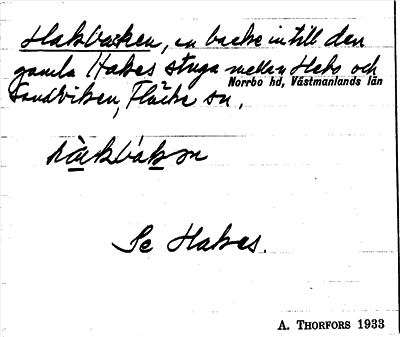 Hakbacken, en backe intill den
gamla Hakes stuga mellan Hebo och
Norrbo hd, Västmanlands län
Sandviken, Fläcke sn.
hàkbákɑn
Se Hakes.
A. THORFORS 1933